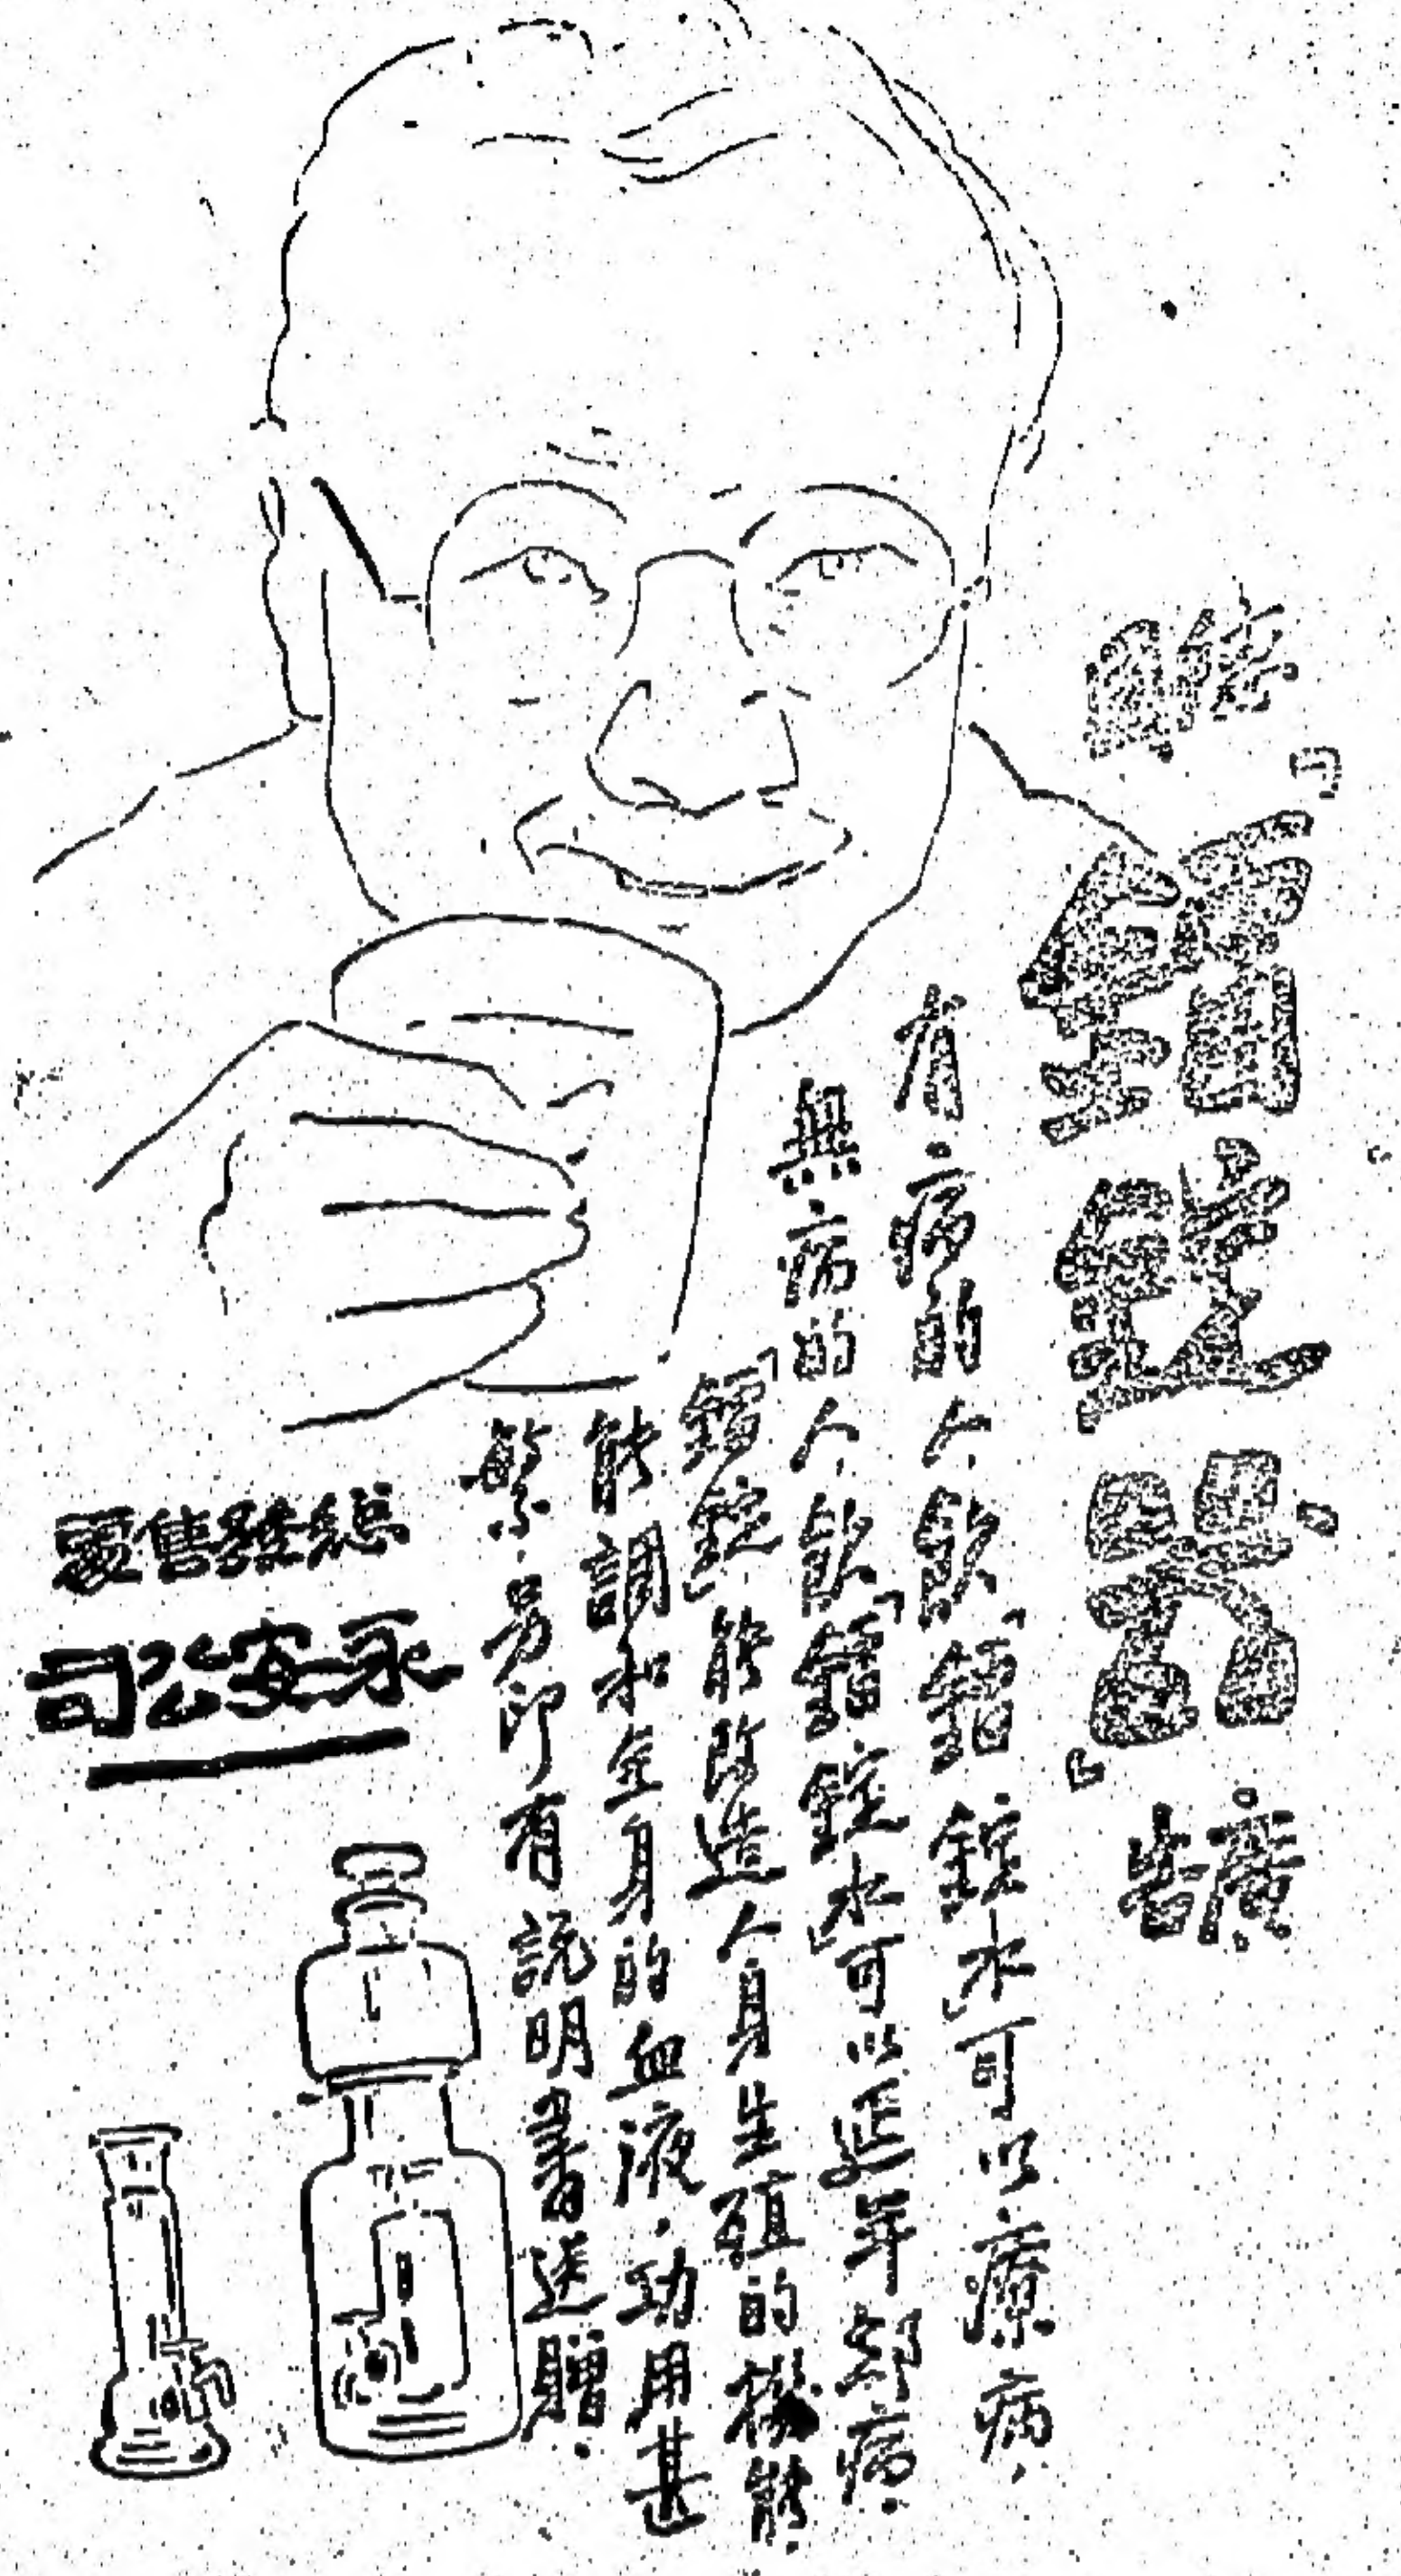 「鐳錠器」
有病的人.飲「鐳錠水」可以療病.
無病的人.飲「鐳錠水」可以延年却病.
「鐳錠」能改造人身生殖的機能.
能調和全身的血液.功用甚
繁.另印有説明書送贈.
總發售處
永安公司